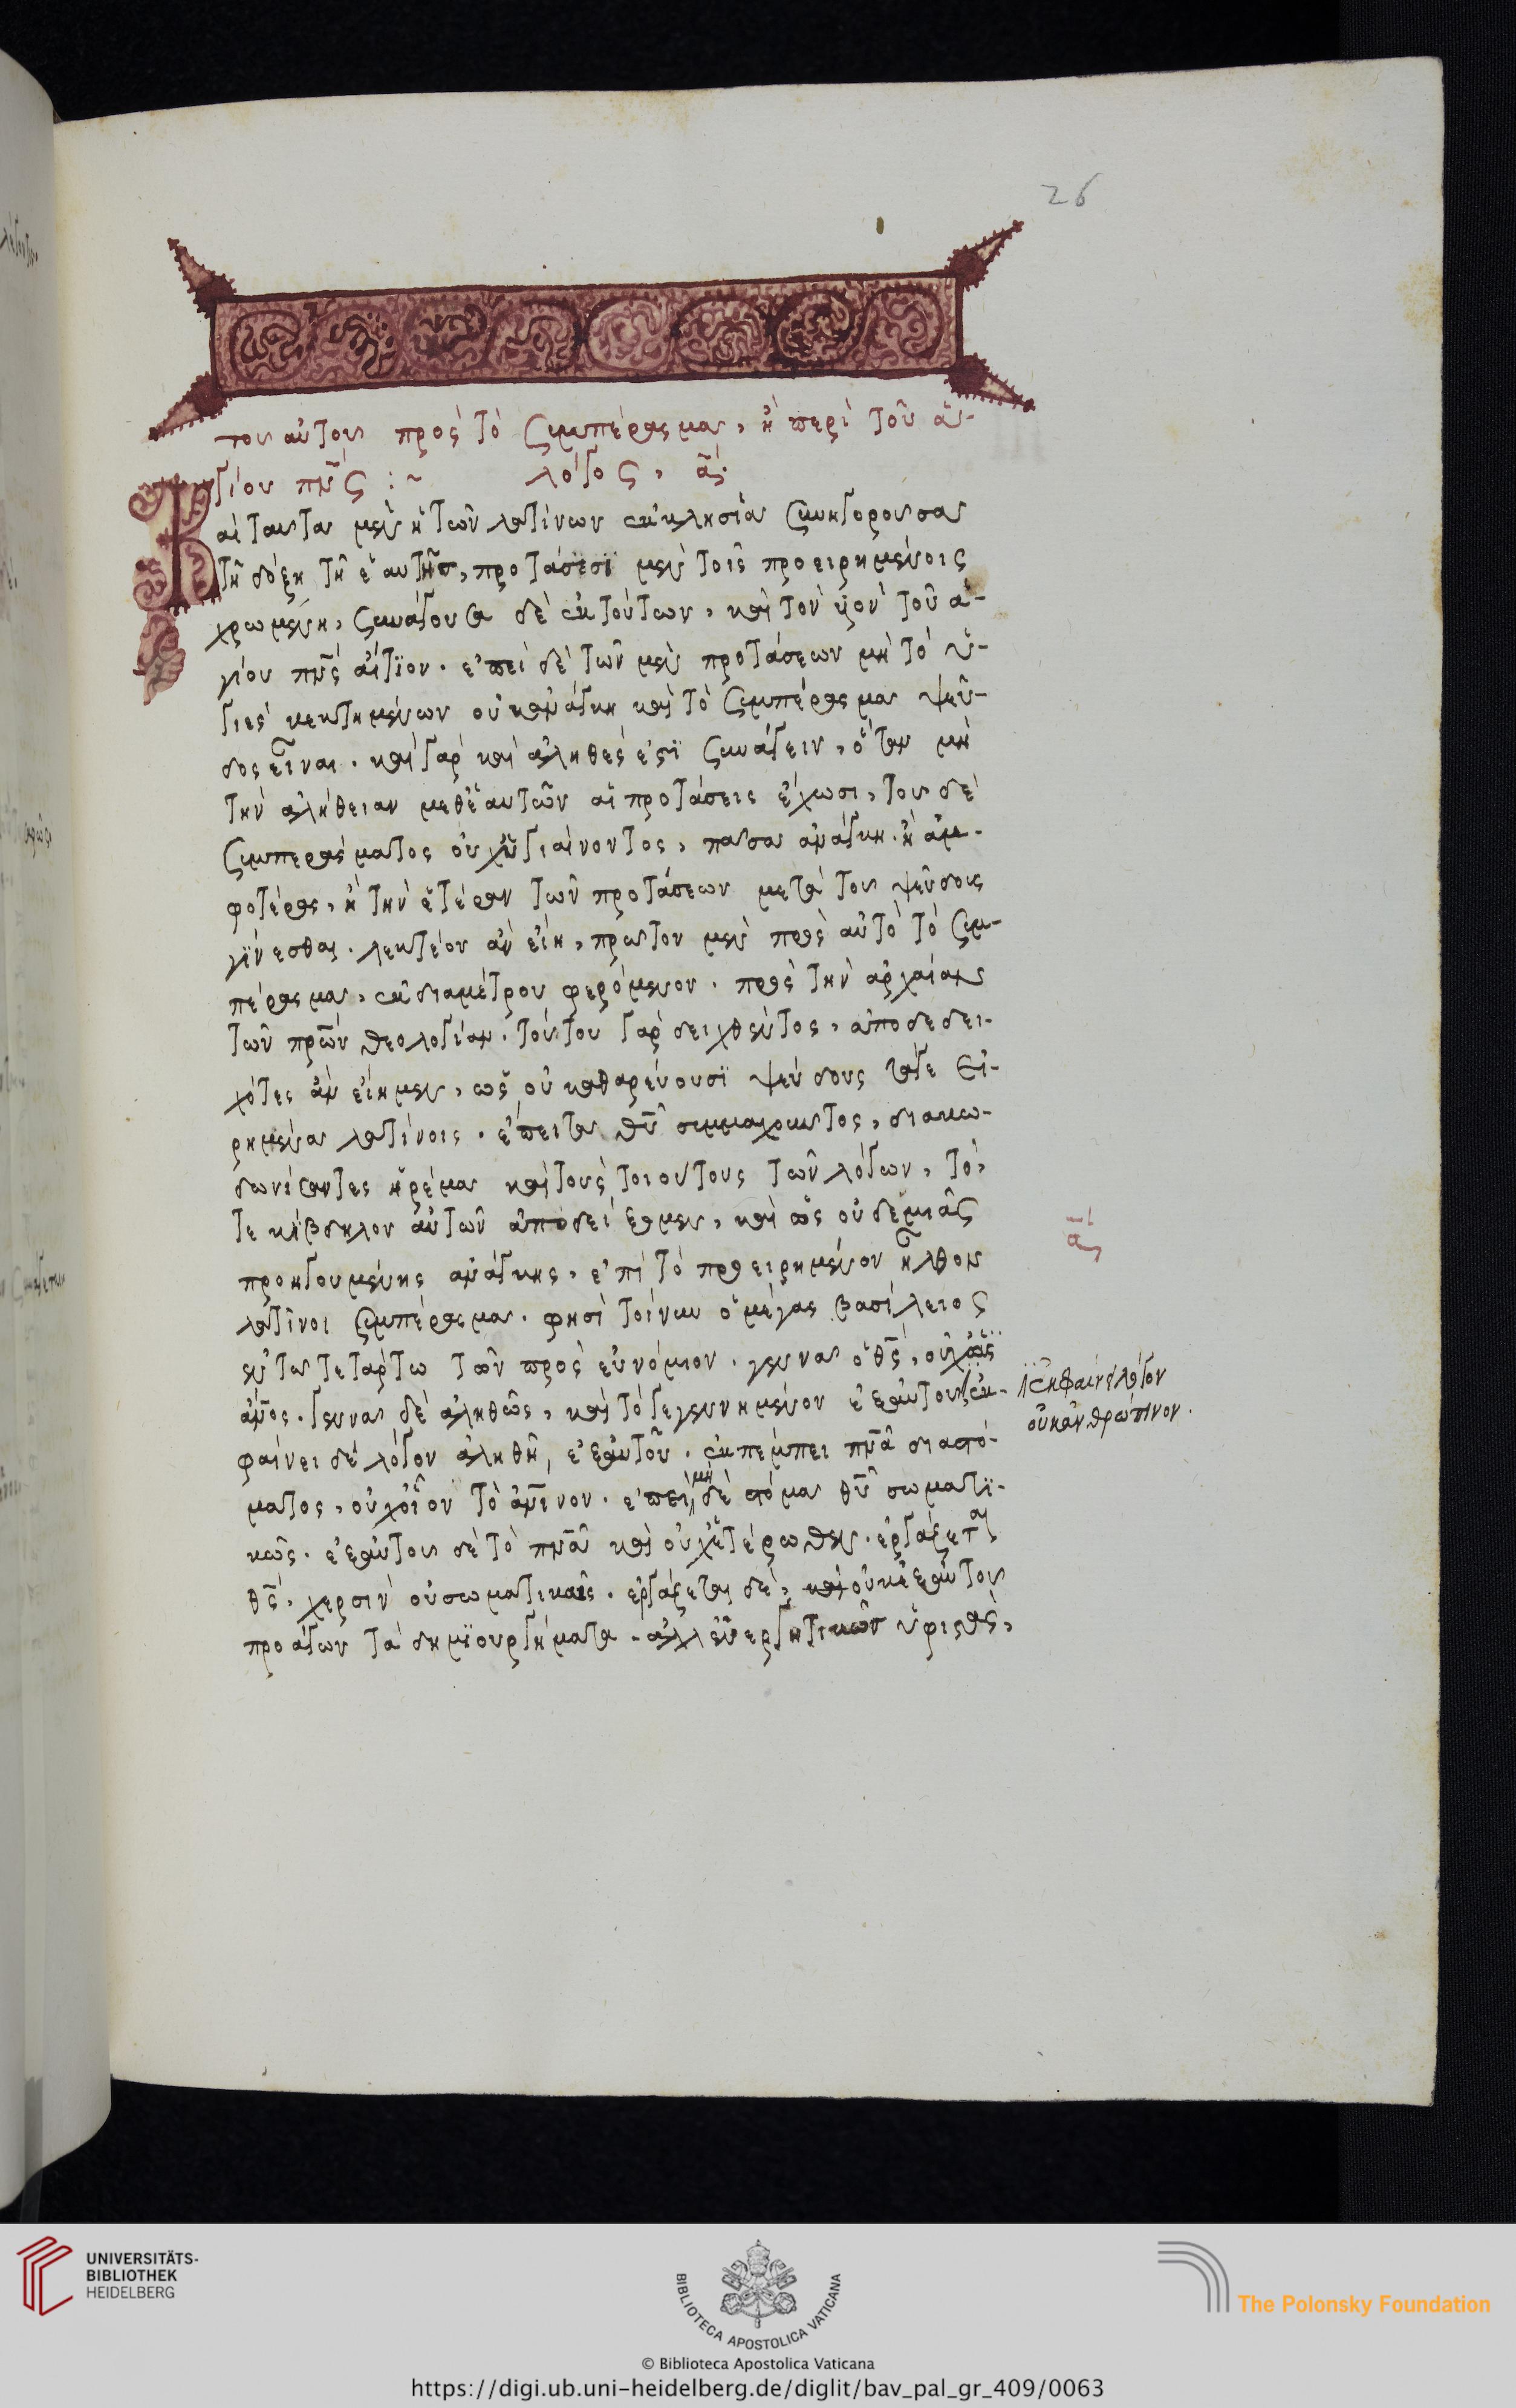 26
του αὐτου προς τὸ ζυμπέρασμα, ἢ περὶ τοῦ ἁ-
γίου πνς :~ λόγος, α.
Καὶ ταυτα μὲν ἡ τῶν λατίνων ἐκκλησία ζυνηγορουσα
τῆ δόξη τῆ ἑαυτῆς, προτάσεσϊ μὲν τοῖς προειρημένοις
χρωμένη, ζυνάγουσα δὲ ἐκ τούτων, καὶ τὸν υἱὸν τοῦ ἁ-
γίου πνς αἴτϊον. ἐπεὶ δὲ τῶν μὲν προτάσεων μὴ τὸ ὑ-
γιὲς κεκτημένων οὐκ ἀνάγκη καὶ τὸ ζυμπέρασμα ψεῦ-
δος εἶναι. καὶ γὰρ καὶ ἀληθές ἐστϊ ζυνάγειν, ὅταν μὴ
τὴν ἀλήθειαν μεθ' ἑαυτῶν αἱ προτάσεις ἔχωσι, του δὲ
ζυμπεράσματος οὐχ ὑγιαίνοντος, πασα ἀνάγκη. ἢ ἀμ-
φοτέρας, ἢ τὴν ἑτέραν τῶν προτάσεων μετὰ του ψεῦδους
γίνεσθαι. λεκτέον ἂν εἴη, πρωτον μὲν πρὸς αὐτὸ τὸ ζυμ-
πέρασμα, ἐκ διαμέτρου φερόμενον. πρὸς τὴν ἀρχαίαν
τῶν πρων θεολογίαν. τούτου γὰρ δειχθέντος, ἀποδεδει-
χότες ἂν εἴημεν, ὡς οὐ καθαρεύουσϊ ψεύδους τά γε εἰ-
ρημένα λατίνοις. ἔπειτα θυ συμμαχουντος, διακω-
δωνίσαντες ἠρέμα καὶ τοὺς τοιούτους τῶν λόγων, τό,
τε κίβδηλον αὐτῶν ἀποδείξομεν, καὶ ὡς οὐδεμιᾶς
προηγουμένης ἀνάγκης, ἐπὶ τὸ προειρημένον ἦλθον
λατῖνοι ζυμπέρασμα. φησὶ τοίνυν ὁ μέγας βασίλειος
ἐν τω τετάρτω τῶν πρὸς εὐνόμιον. γεννα ὁ θς, οὐχ ὡς
ανος. γεννα δὲ ἀληθῶς, καὶ τὸ γεγεννημένον ἐξ αὐτου ἐκ-
φαίνει δὲ λόγον ἀληθῆ, ἐξ αὐτοῦ. ἐκπέμπει πνα διαστό-
ματος, οὐχ οἷον τὸ ανινον. ἐπεὶ μὴ δὲ στόμα θυ σωματϊ-
κῶς. ἐξ αὐτου δὲ τὸ πνα καὶ οὐχ ἑτέρωθεν. ἐργάζεται
θς, χερσὶν οὐ σωματικαῖς. ἐργάζεται δὲ, καὶ οὐκ ἐξ αὐτου
προάγων τὰ δημϊουργήματα. ἀλλ' ἐνεργητικῶς ὑφιστὰς,
α
ἐκφαίνει λόγον
οὐκ ἀνθρώπινον.
UNIVERSITÄTS-
BIBLIOTHEK
HEIDELBERG
BIBLIOTECA APOSTOLICA VATICANA
The Polonsky Foundation
© Biblioteca Apostolica Vaticana
https://digi.ub.uni-heidelberg.de/diglit/bav_pal_gr_409/0063